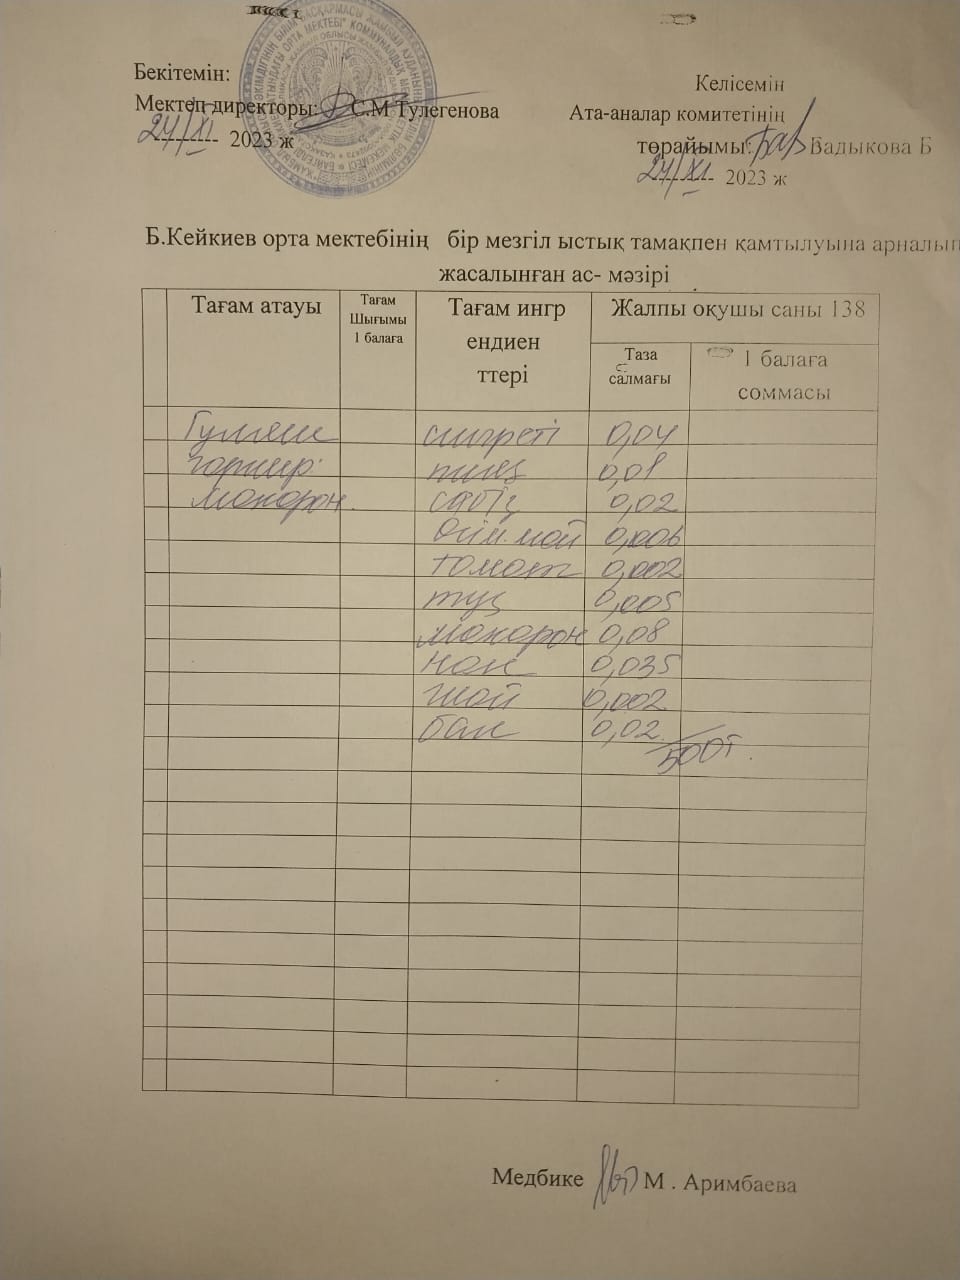 Бекітемін:
Келісемін
Мектеп директоры: С.М Тулегенова
Ата-аналар комитетінің
24/XI 2023 ж
төрайымы: Бадыкова Б
24/XI 2023 ж
Б.Кейкиев орта мектебінің бір мезгіл ыстық тамақпен қамтылуына арналып
жасалынған ас- мәзірі
Тағам атауы
Тағам
Шығымы
1 балаға
Тағам ингр
ендиен
ттері
Жалпы оқушы саны 138
Таза
салмағы
1 балаға
соммасы
Гуляш сиыр еті 0,04
гарнир: пияз 0,01
макарон. сәбіз 0,02
өсім. май 0,006
томат 0,002
тұз 0,005
макарон 0,08
нан 0,035
шай 0,002
бал 0,02
500т.
Медбике М . Аримбаева